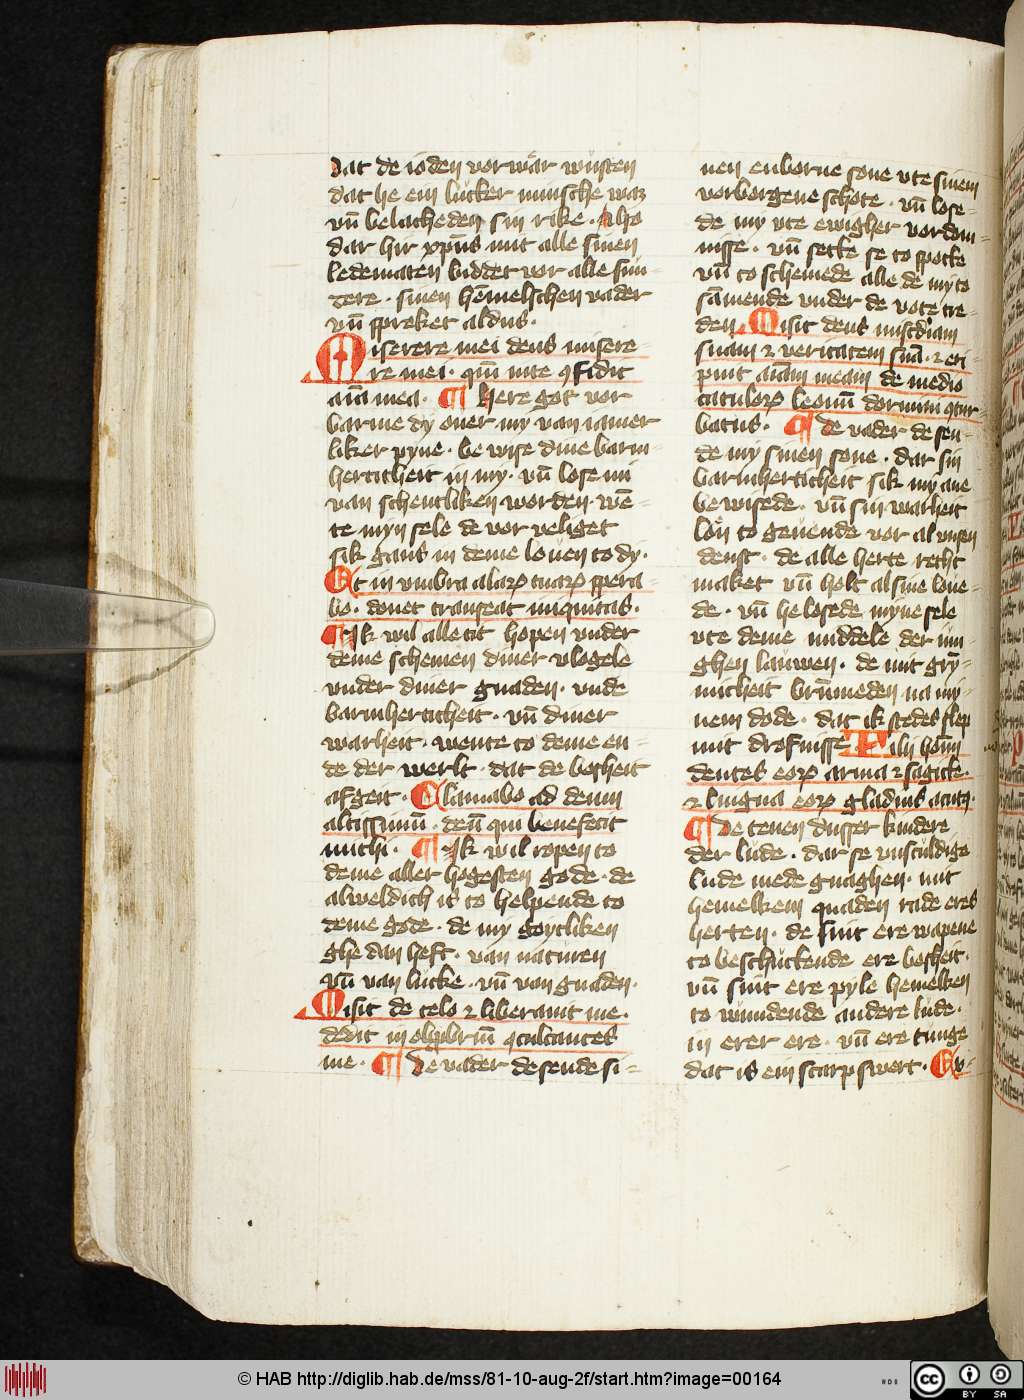 dat de ioden vorwar wusten
dat he ein lucker minsche waz
vn̄ belacheden sin rike · Also
dar hir xpūs mit alle sinen
ledematen biddet vor alle sun-
dere · sinen hemelschen vader
vn̄ spreket aldus ·
Miserere mei deus misere-
re mei · qm̄ in te ꝯfidit
aīa mea · ¶ Here got vor
barme dy ouer my van iamer
liker pyne · be wise dine barm-
herticheit in my · vn̄ lose mi
van schentliken worden · wē-
te myn sele de vor veliget
sik gans in deme louen to dy ·
Et in vmbra alarꝝ tuarꝝ spera-
bo · donec transeat iniquitas ·
¶ Ik wil alle tit hopen vnder
deme schemen diner vlogele
vnder diner gnaden · vnde
barmherticheit · vn̄ diner
warheit · wente to deme en-
de der werlt · dat de bosheit
afgeit · Clamabo ad deum
altissimū · deū qui benefecit
michi · ¶ Ik wil ropen to
deme aller hogesten gode · de
alweldich is to helpende to
deme gode · de my goytliken
ghe dan heft · van naturen
vn̄ van lucke · vn̄ van gnaden ·
Misit de celo ⁊ liberauit me ·
dedit in obprobriū ꝯculcantes
me · ¶ De vader de sende si-
nen enborne sone vte sinem
vorborgene schote · vn̄ lose-
de my vte ewigher vordom-
nisse · vn̄ sette se to spotte
vn̄ to schemede alle de my to
samende vnder de vote tre-
den · Misit deus misc̄diam
suam ⁊ veritatem suā · ⁊ eri-
puit aīam meam de medio
catulorꝝ leonū dormiui ꝯtur-
batus · ¶ De vader de sen-
de my sinen sone · dar sin
barmherticheit sik my ane
bewisede · vn̄ sin warheit
lon to geuende vor al vnsen
denst · de alle herte recht
maket vn̄ holt al sine loue-
de · vn̄ he losede myne sele
vte deme middele der iun-
ghen lauwen · de mit grȳ-
micheit brummeden na my-
nem dode · dat ik stedes slep
mit drofnisse · Filij homi
dentes eorꝝ arma ⁊ sagitte ·
⁊ lingua eorꝝ gladius acutꝰ ·
¶ De tenen dusser kindere
der lude · dar se vnsculdige
lude mede gnaghen · mit
hemelkem quaden rade eres
herten · de sint ere wapene
to beschuttende ere bosheit ·
vn̄ sint ere pyle hemelken
to wundende andere lude ·
in erer ere · vn̄ ere tunge
dat is ein scarp swert · Ex-
© HAB http://diglib.hab.de/mss/81-10-aug-2f/start.htm?image=00164
HAB
cc BY SA